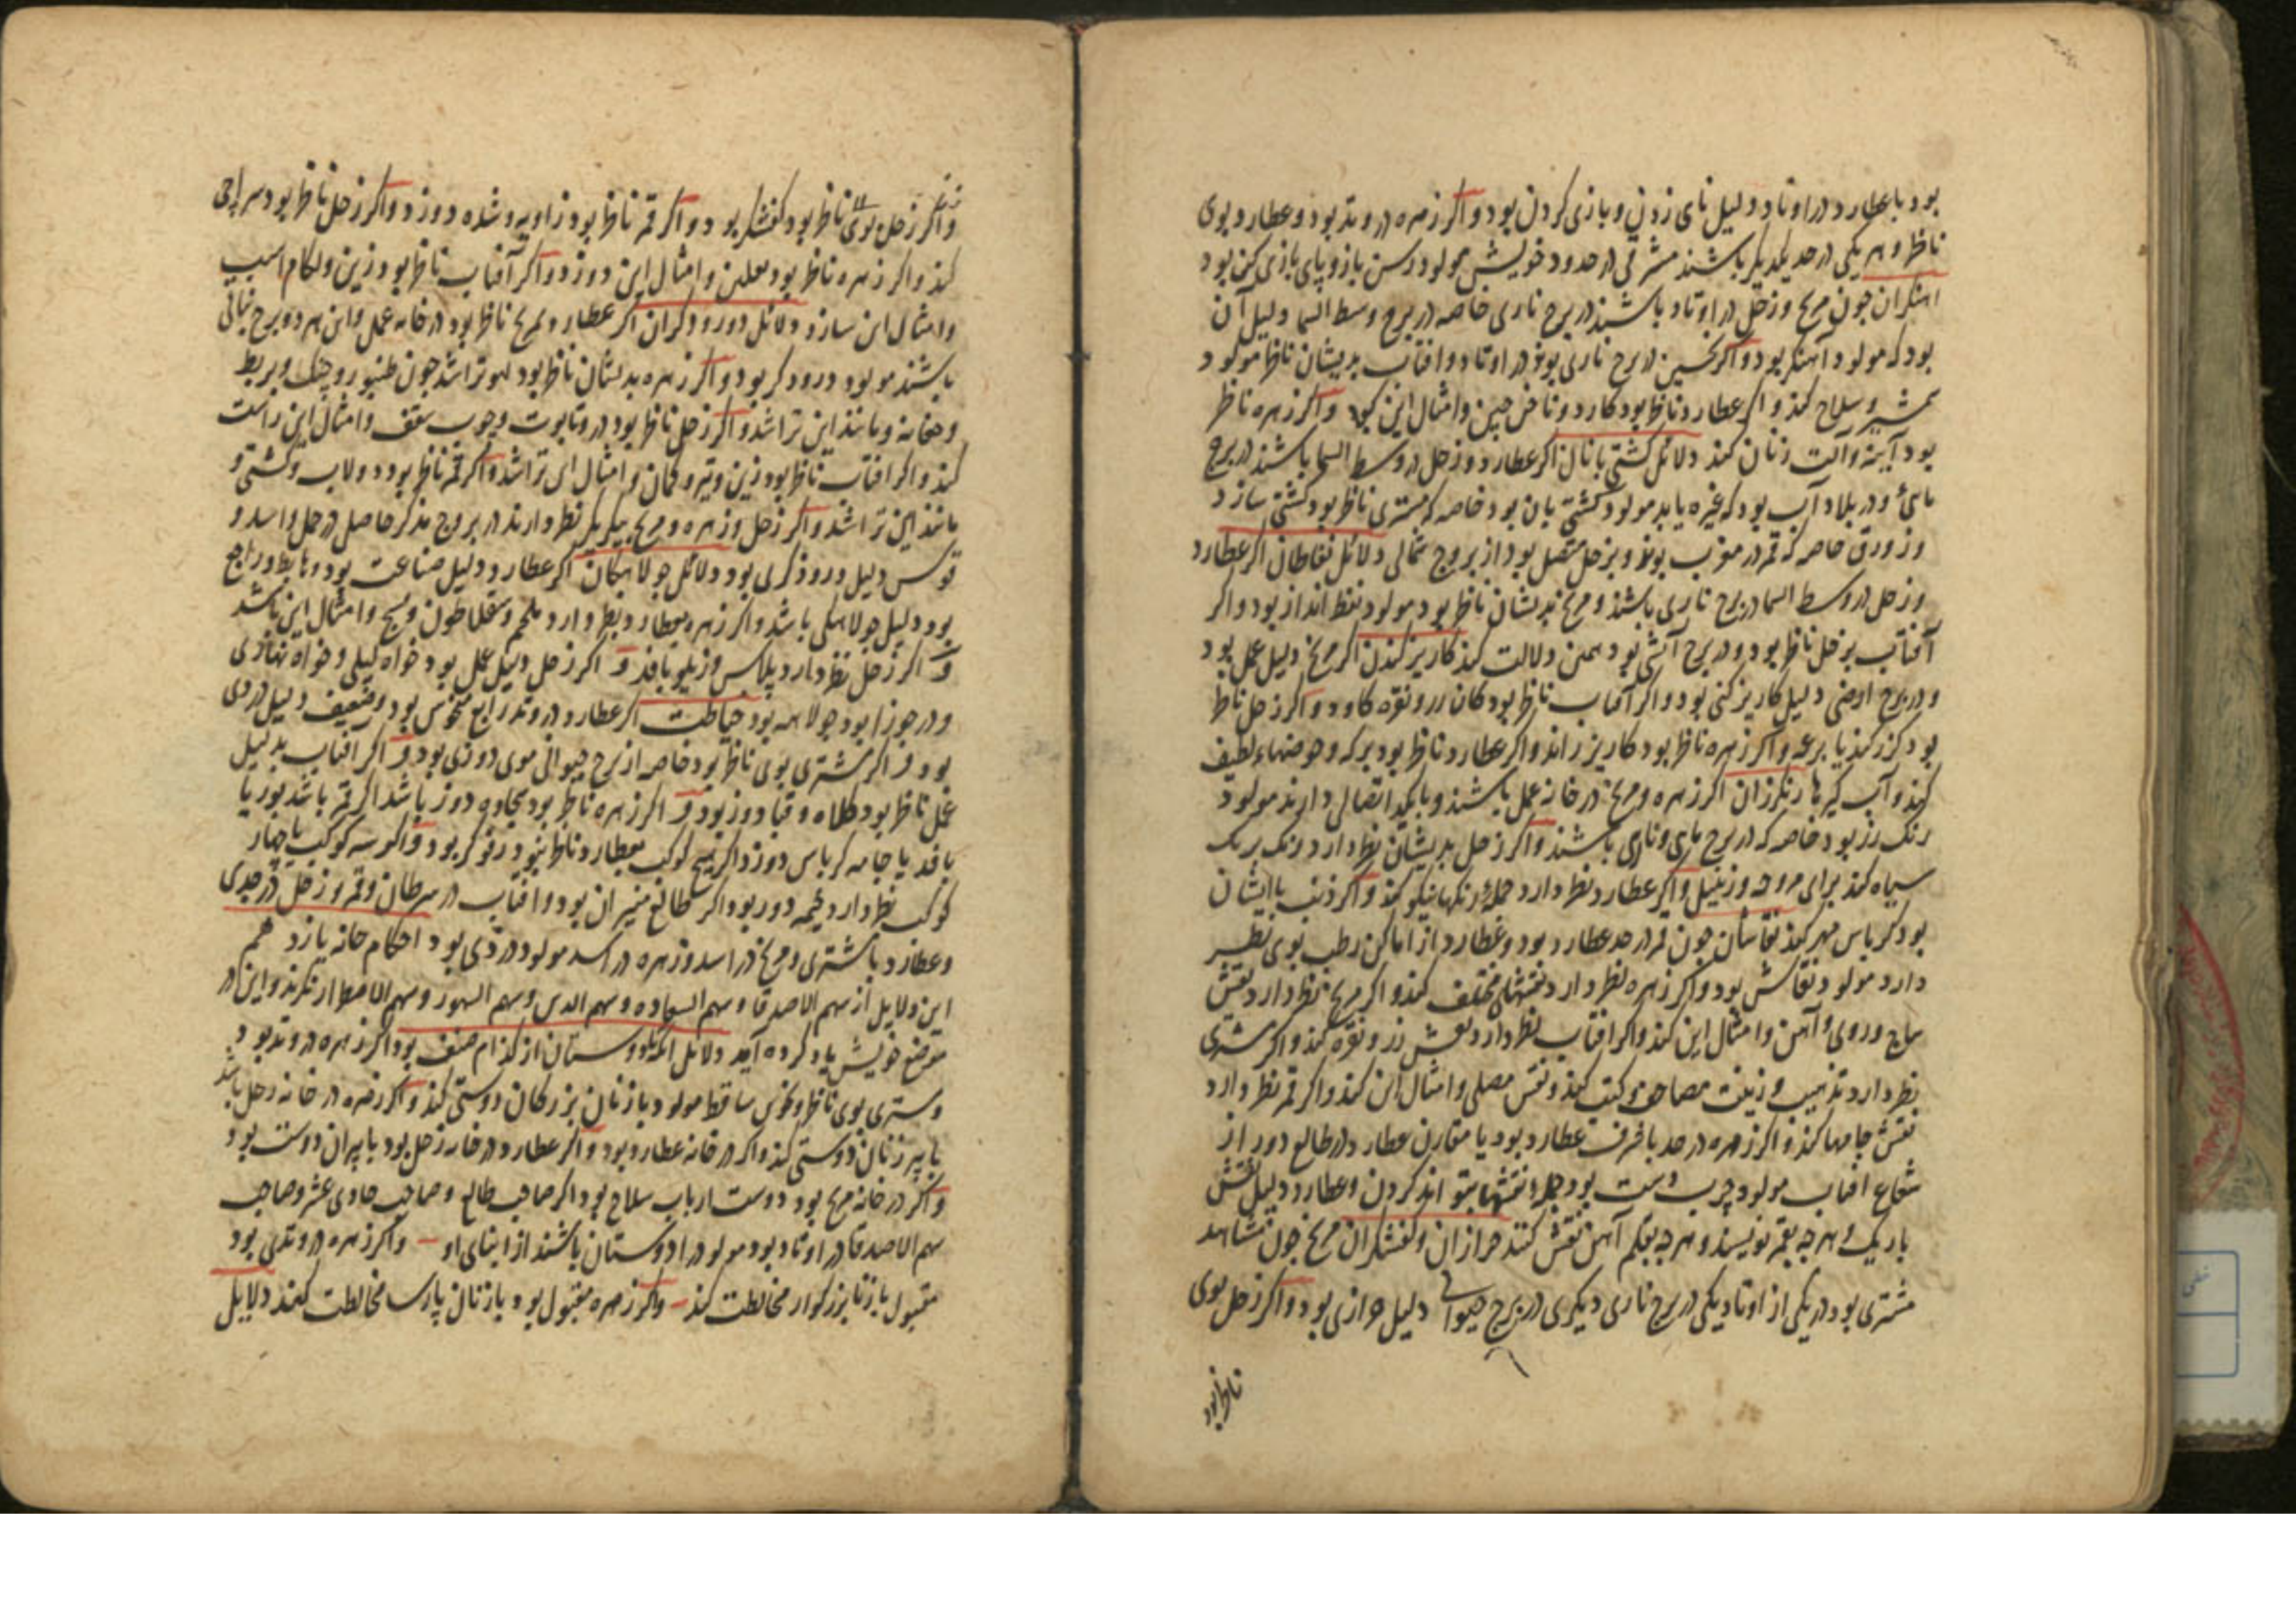 بود با عطارد در اوتاد دلیل نای زدن و بازی کردن بود و اگر زهره در وتد بود و عطارد بوی
ناظر و هر یکی در حد یکدیگر باشند مشرقی در حدود خویش مولود رسن باز و پای بازی کن بود
آهنگران چون مریخ و زحل در اوتاد باشند در برج ناری خاصه در برج وسط السما دلیل آن
بود که مولود آهنگر بود و اگر نحسین در برج ناری بوند در اوتاد و افتاب بدیشان ناظر مولود
شمشیر و سلاح کند و اگر عطارد ناظر بود کارد و ناخن چین و امثال این کند و اگر زهره ناظر
بود آینه و آلت زنان کند دلائل کشتی بانان اگر عطارد و زحل در وسط السما باشند در برج
مائی و در بلاد آب بود که غیره یابد مولود کشتی بان بود خاصه که مشتری ناظر بود کشتی سازد
و زورق خاصه که قمر در مغرب بوند و بزحل متصل بود از بروج شمالی دلائل نفاطان اگر عطارد
و زحل در وسط السما در برج ناری باشند و مریخ بدیشان ناظر بود مولود نفط انداز بود و اگر
آفتاب بزحل ناظر بود و در برج آتشی بود همین دلالت کند کاریز کندن اگر مریخ دلیل عمل بود
و در برج ارضی دلیل کاریز کنی بود و اگر آفتاب ناظر بود کان زر و نقره کاود و اگر زحل ناظر
بود کزر کند یا برعه و اگر زهره ناظر بود کاریز راند و اگر عطارد ناظر بود برکه و حوضهاء لطیف
کند و آب گیرها رنگرزان اگر زهره و مریخ در خانه عمل باشند و با یکدیگر اتصالی دارند مولود
رنگ رز بود خاصه که در برج مائی و ناری باشند و اگر زحل بدیشان نظر دارد رنگ بریک
سیاه کند برای مروحه و زنبیل و اگر عطارد نظر دارد جمله رنگها نیکو کند و اگر ذنب با ایشان
بود کرباس مهر کند نقاشان چون قمر در حد عطارد بود و عطارد از اماکن رطب بوی نظر
دارد مولود نقاش بود و اگر زهره نظر دارد نقشهای مختلف کند و اگر مریخ نظر دارد نقش
ساج و روی و آهن و امثال این کند و اگر افتاب نظر دارد نقش زر و نقره کند و اگر مشتری
نظر دارد تذهیب و زینت مصاحف و کتب کند و نقش مصلی و امثال این کند و اگر قمر نظر دارد
نقش جامها کند و اگر زهره در حد با شرف عطارد بود یا مقارن عطارد در طالع دور از
شعاع افتاب مولود چرب دست بود جمله نقشها بتواند کردن و عطارد دلیل نقش
باریک و هرچه بقلم نویسند و هرچه بقلم آهن نقش کنند خرازان و کفشگران مریخ چون مشاهد
مشتری بود در یکی از اوتاد یکی در برج ناری دیگری در برج حیوانی دلیل خرازی بود و اگر زحل بوی
ناظر بود
و اگر زحل بوی ناظر بود کفشگر بود و اگر قمر ناظر بود زاویه و شده دوزد و اگر زحل ناظر بود سراجی
کند و اگر زهره ناظر بود نعلین و امثال این دوزد و اگر آفتاب ناظر بود زین و لگام اسب
و امثال این سازد دلائل درودگران اگر عطارد و مریخ ناظر بود در خانه عمل و این هر دو برج نباتی
باشند مولود درودگر بود و اگر زهره بدیشان ناظر بود لهو تراشد چون طنبور و چنگ و بربط
و چغانه و مانند این تراشد و اگر زحل ناظر بود در و تابوت و چوب سقف و امثال این راست
کند و اگر افتاب ناظر بود زین و تیر و کمان و امثال این تراشد و اگر قمر ناظر بود دولاب و کشتی و
مانند این تراشد و اگر زحل و زهره و مریخ بیکدیگر نظر دارند در بروج مذکر حاصل در حمل و اسد و
قوس دلیل درودگری بود دلائل جولاهگان اگر عطارد دلیل صناعت بود و هابط و راجع
بود دلیل جولاهگی باشد و اگر زهره بعطارد نظر دارد ملحم و سقلاطون و نسیج و امثال این باشد
و اگر زحل نظر دارد پلاس و زیلو بافد و اگر زحل دلیل عمل بود خواه لیلی و خواه نهاری
و در جوزا بود جولاهه بود خیاطت اگر عطارد در وتد رابع منحوس بود و ضعیف دلیل درزی
بود و اگر مشتری بوی ناظر بود خاصه از برج حیوانی موی دوزی بود و اگر افتاب بدلیل
عمل ناظر بود کلاه و قبا دوز بود و اگر زهره ناظر بود سجاده دوز باشد اگر قمر باشد بوریا
بافد یا جامه کرباس دوزد اگر هیچ کوکب بعطارد ناظر نبود رفوگر بود و اگر سه کوکب یا چهار
کوکب نظر دارد خیمه دوز بود اگر طالع میزان بود و افتاب در سرطان و قمر و زحل در جدی
و عطارد با مشتری و مریخ در اسد و زهره در اسد مولود درزی بود احکام خانه یازدهم
این دلایل از سهم الاصدقا و سهم السعاده و سهم الدین و سهم البهور و سهم الاضطرار نگرند و این در
موضع خویش یاد کرده آید دلائل آنکه دوستان از کدام صنف بود اگر زهره در وتد بود
و مشتری بوی ناظر و نحوس ساقط مولود با زنان بزرگان دوستی کند و اگر زهره در خانه زحل باشد
با پیر زنان دوستی کند و اگر در خانه عطارد بود و اگر عطارد در خانه زحل بود با پیران دوست بود
و اگر در خانه مریخ بود دوست ارباب سلاح بود اگر صاحب طالع و صاحب حادی عشر و صاحب
سهم الاصدقا در اوتاد بود مولود را دوستان باشند از ابنای او و اگر زهره در وتدی بود
مقبول با زنان بزرگوار مخالطت کند و اگر زهره مقبول بود با زنان پارسا مخالطت کند دلایل